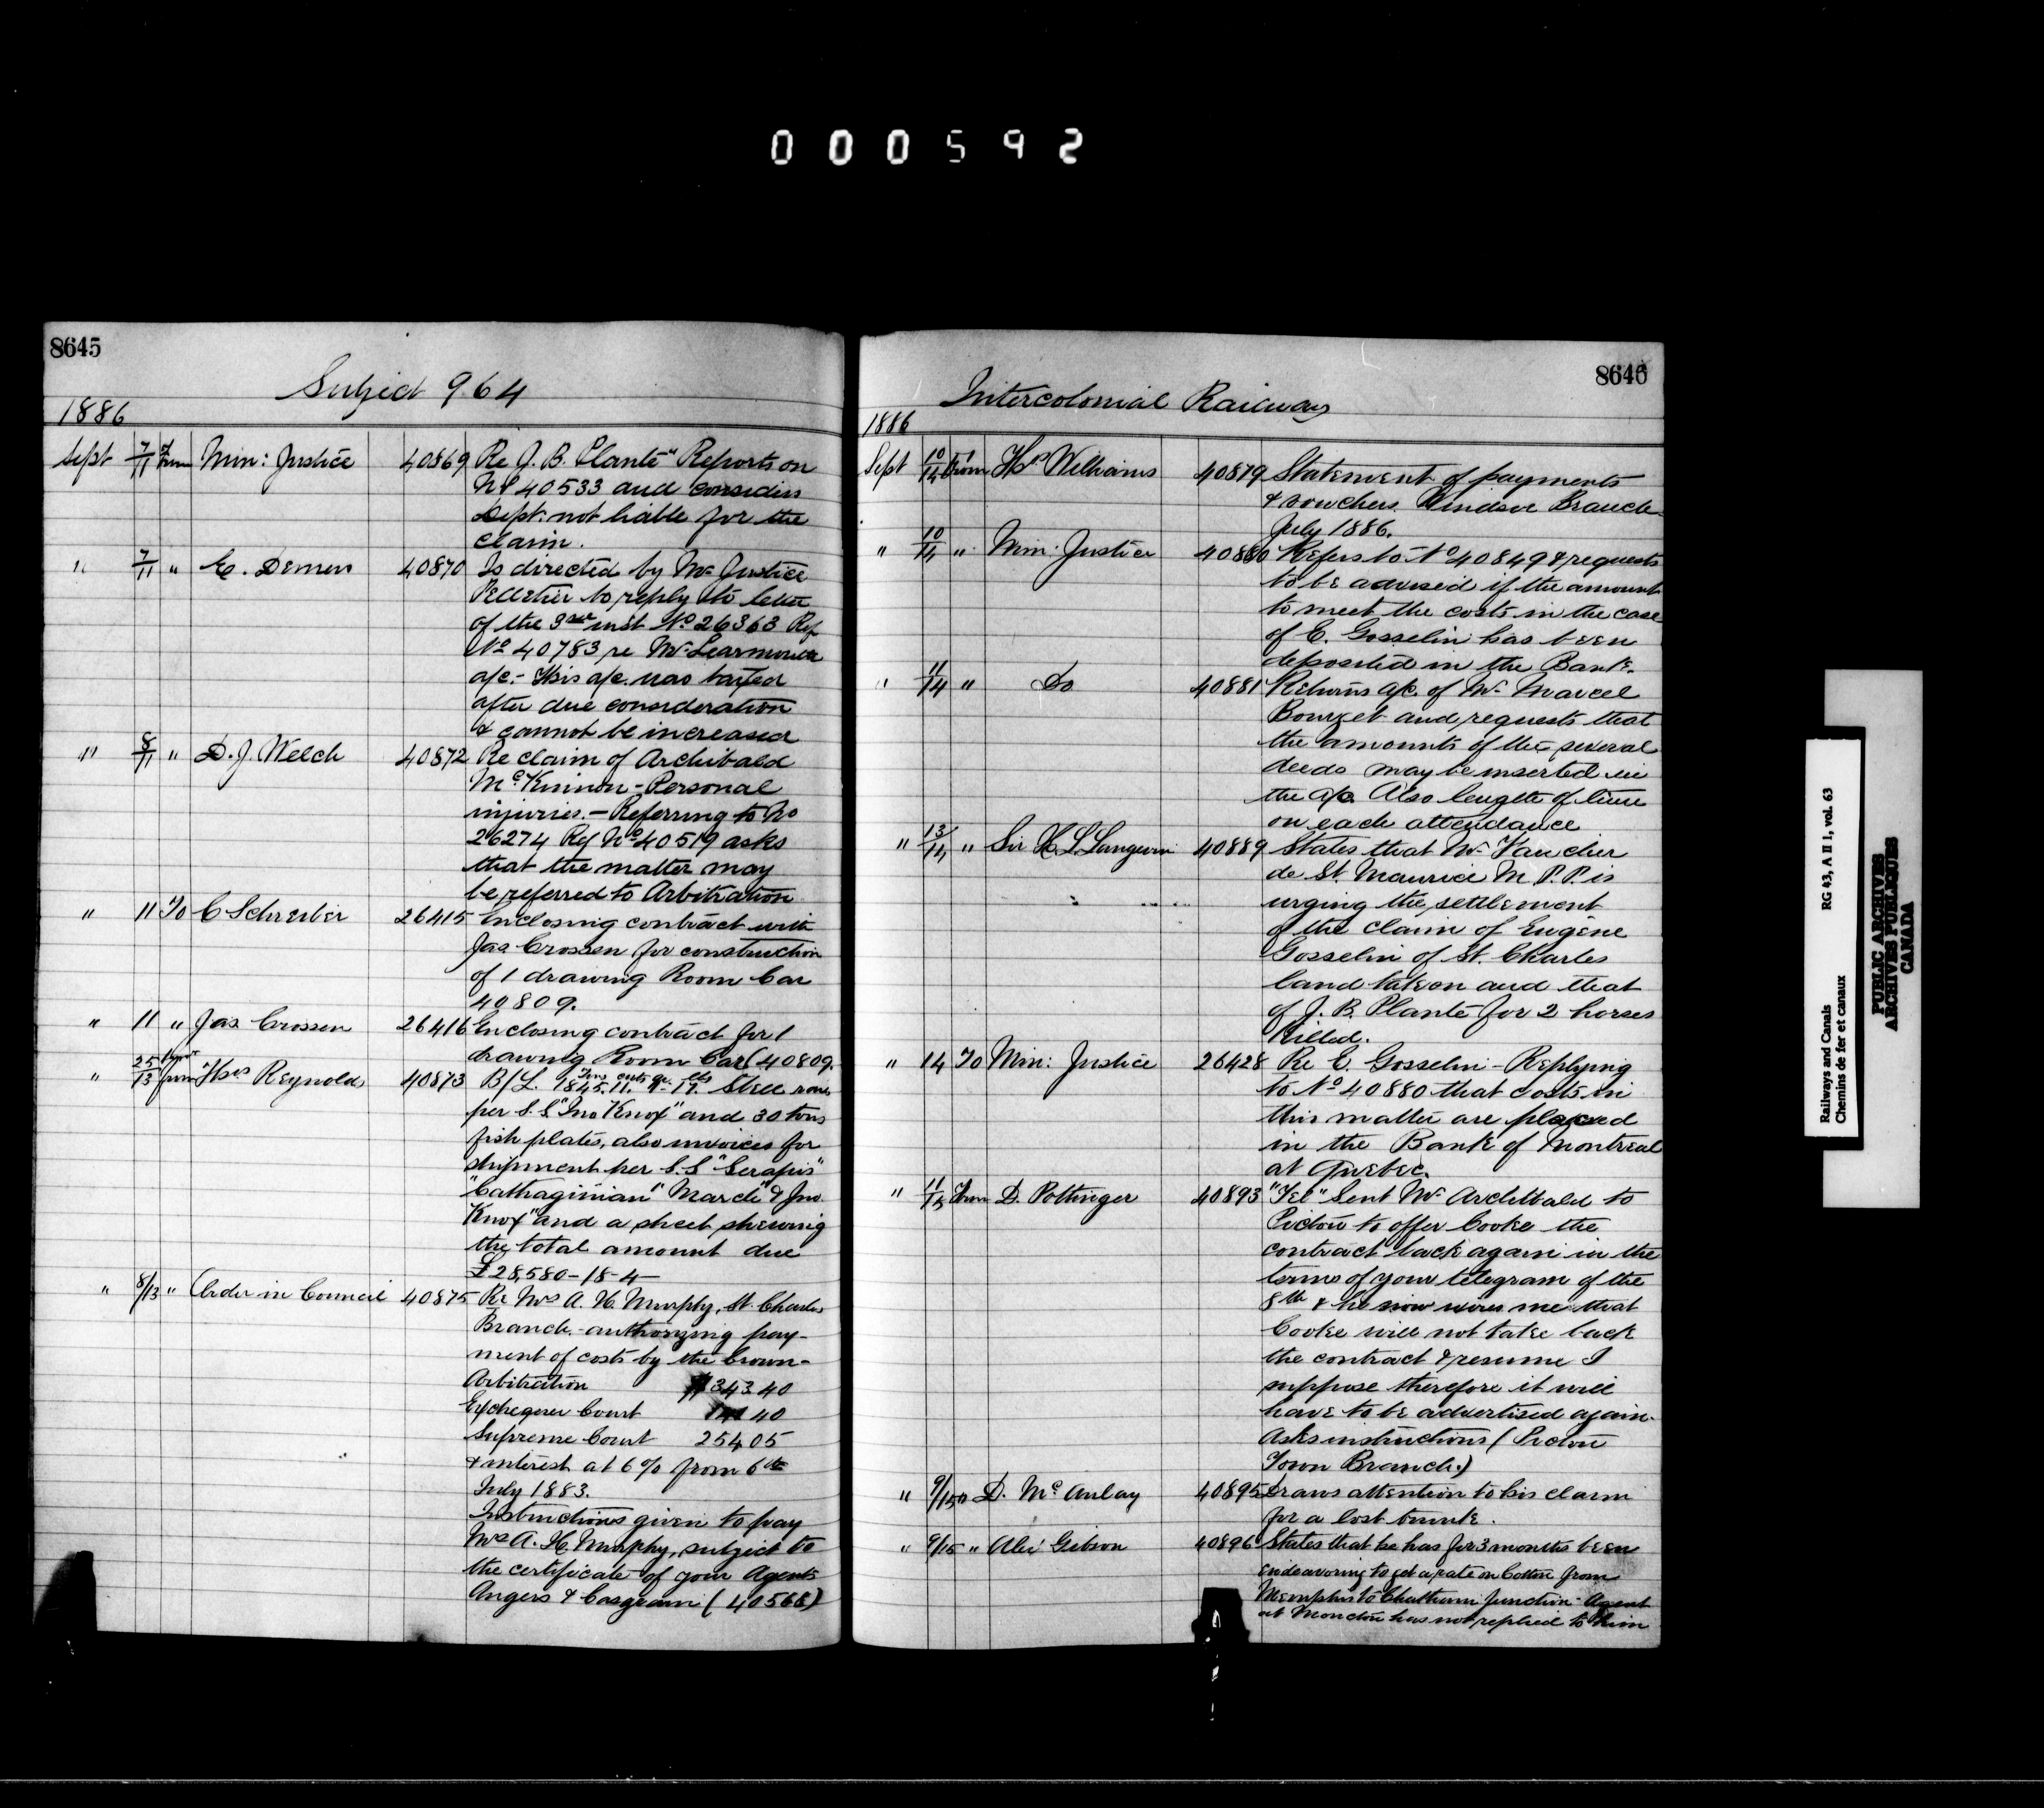 000592
8645
Subject 964
1886
Sept 7/11 From Min: Justice 40869 Re J. B. Planté" Reports on
No 40533 and considers
Dept. not liable for the
claim.
" 7/11 " E. Demers 40870 Is directed by Mr Justice
Pelletier to reply to letter
of the 3rd inst No 26363 Ref
No 40783 re Mr Learmonth
a/c.- This a/c. was taxed
after due consideration
& cannot be increased
" 8/11 " D. J. Welch 40872 Re claim of Archibald
McKinnon - Personal
injuries. - Referring to No
26274 Ref No 40519 asks
that the matter may
be referred to Arbitration
" 11 To C Schreiber 26415 Enclosing contract with
Jas Crossen for construction
of 1 drawing Room Car
40809.
" 11 " Jas Crossen 26416 Enclosing contract for 1
drawing Room Car (40809.
" 25/13 Augt from Thos Reynolds 40873 B/L. 1845. 11. 1- 17. Steel
Tons cwts qr. lbs
per S.S. "Jno Knox" and 30 tons
fish plates, also invoices for
shipment per S.S. "Serapis"
"Cathaginian" March" & Jno.
Knox" and a sheet shewing
the total amount due
£28,580-18-4-
" 8/13 " Order in Council 40875 Re Mrs A. H. Murphy, St. Charles
Branch.- authorizing pay-
ment of costs by the Crown-
Arbitration $343.40
Exchequer Court 40
Supreme Court 254 05
& interest at 6% from 6th
July 1883.
Instructions given to pay
Mrs A. H. Murphy, subject to
the certificate of your Agents
Angers & Casgrain (40568)
8646
Intercolonial Railway
1886
Sept 10/14 From Thos Williams 40879 Statement of payments
& vouchers. Windsor Branch-
July 1886.
" 10/14 " Min: Justice 40880 Refers to No 40849 & requests
to be advised if the amount
to meet the costs in the case
of E. Gosselin has been
deposited in the Bank.
" 11/14 " Do 40881 Returns a/c. of Mr Marcel
Bourget and requests that
the amounts of the several
deeds may be inserted in
the a/c. Also length of time
on each attendance
" 13/14 " Sir H. L. Langevin 40889 States that Mr Faucher
de St. Maurice M.P.P. is
urging the settlement
of the claim of Eugène
Gosselin of St. Charles
land taken and that
of J. B. Planté for 2 horses
Killed.
" 14 To Min: Justice 26428 Re E. Gosselin - Replying
to No 40880 that costs in
this matter are placed
in the Bank of Montreal
at Quebec.
" 11/15 From D. Pottinger 40893 "Tel" Sent Mr Archibald to
Pictou to offer Cooke the
contract back again in the
terms of your telegram of the
8th & he now wires me that
Cooke will not take back
the contract & resume I
suppose therefore it will
have to be advertised again.
Asks instructions (Pictou
Town Branch.)
" 9/15 D. McAulay 40895 Draws attention to his claim
for a lost trunk.
" 9/15 " Alex Gibson 40896 States that he has for 3 months been
endeavoring to get a rate on Cotton from
Memphis to Chatham Junction - Agent
at Moncton has not replied to him
Railways and Canals RG 43, A II 1, vol. 63
Chemins de fer et canaux
PUBLIC ARCHIVES
ARCHIVES PUBLIQUES
CANADA